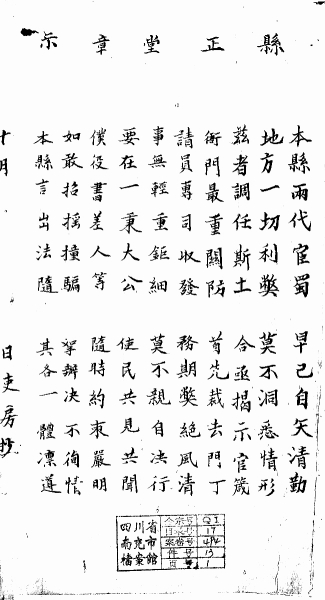 縣正堂章示
本縣兩代宦蜀　早已自矢清勤
地方一切利弊　莫不洞悉情形
茲者調任斯土　合亟揭示官箴
衙門最重關防　首先裁去門丁
請員專司收發　務期弊絕風清
事無輕重鉅細　莫不親自決行
要在一秉大公　使民共見共聞
僕役書差人等　隨時約束嚴明
如敢招搖撞騙　拏辦決不徇情
本縣言出法隨　其各一體凜遵
十月　日吏房抄
四川省
南充市
檔案館
全宗号 Q1
目录号 17
案卷号 494
件号 13
頁号 1